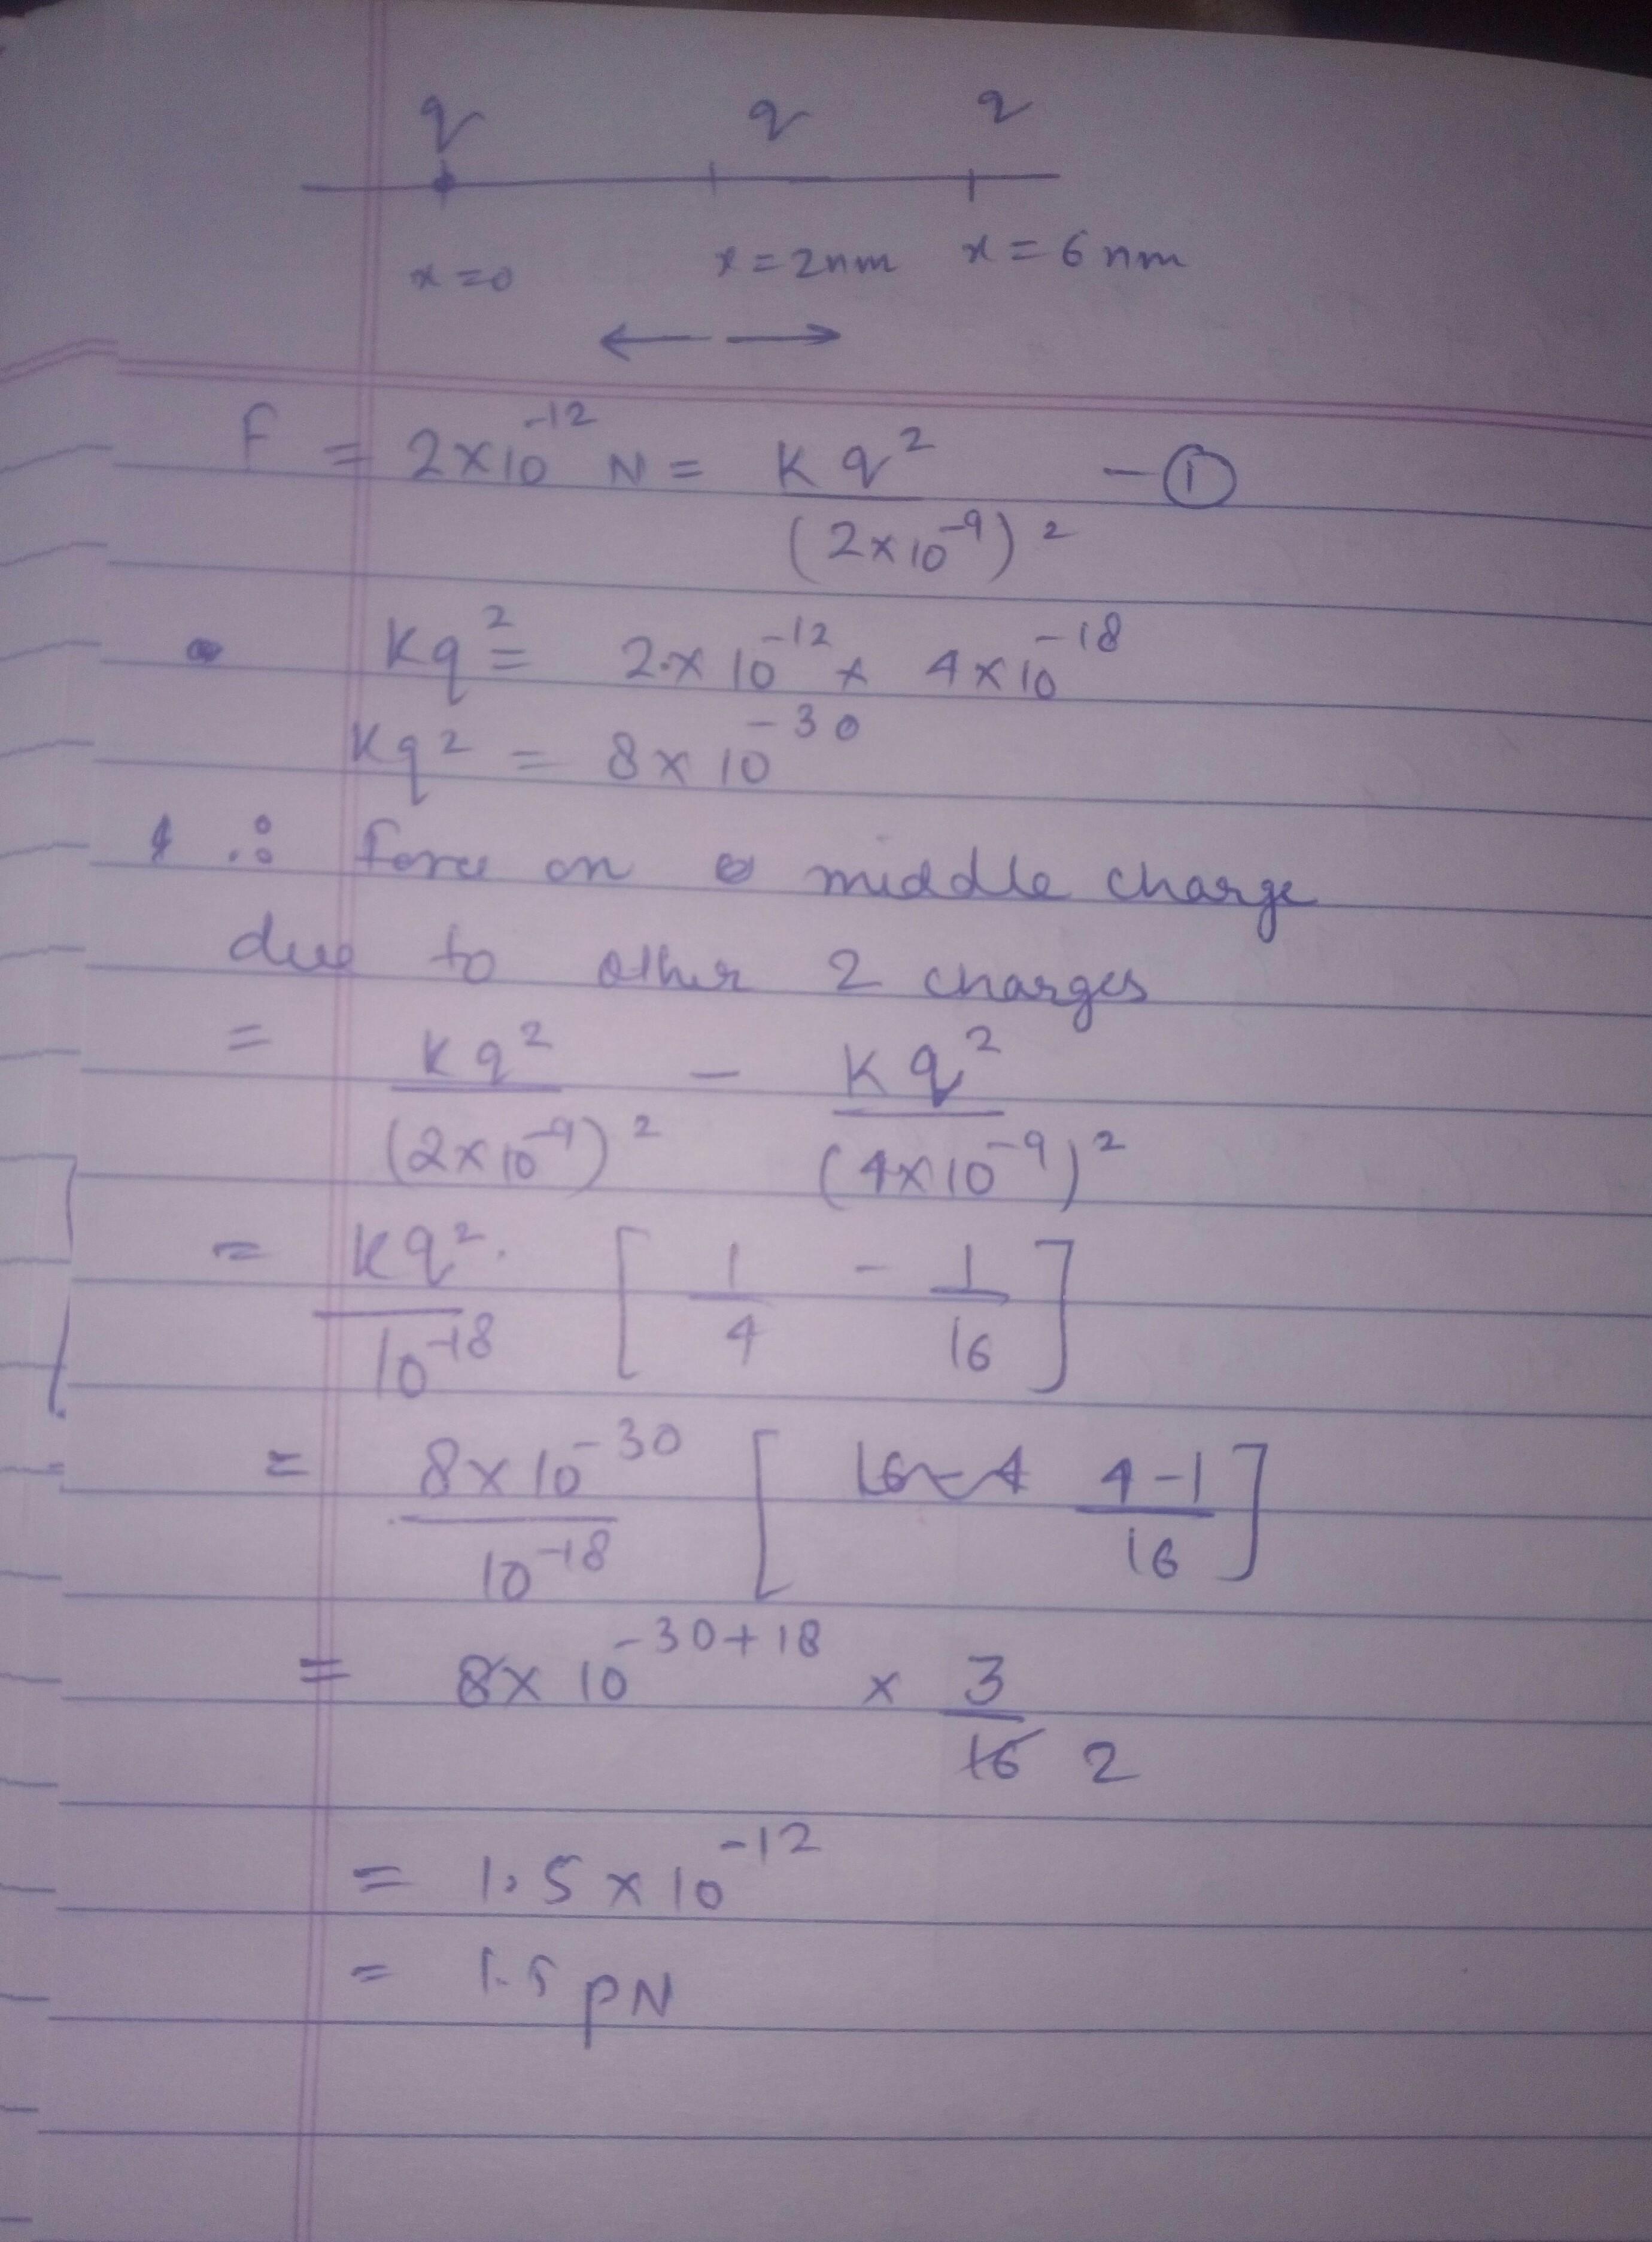 q q q
x=0 x=2nm x=6nm
F = 2×10^-12 N = Kq^2 / (2×10^-9)^2 - ①
Kq^2 = 2×10^-12 × 4×10^-18
Kq^2 = 8×10^-30
∴ force on middle charge
due to other 2 charges
= Kq^2 / (2×10^-9)^2 - Kq^2 / (4×10^-9)^2
= Kq^2 / 10^-18 [1/4 - 1/16]
= 8×10^-30 / 10^-18 [4-1 / 16]
= 8×10^-30+18 × 3/16 2
= 1.5×10^-12
= 1.5 pN